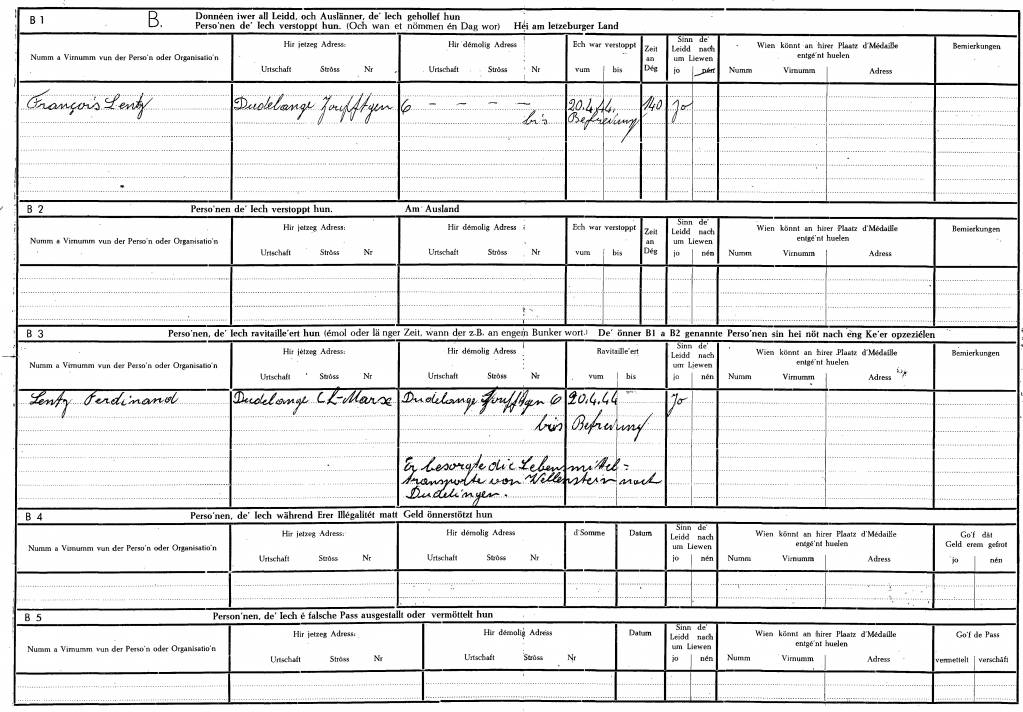 B 1 B. Donnéen iwer all Leidd, och Auslänner, de' Iech gehollef hun
Perso'nen de' Iech verstoppt hun. (Och wan et nömmen én Dag wor) Héi am letzeburger Land
Numm a Virnumm vun der Perso'n oder Organisatio'n
Hir jetzeg Adress:
Urtschaft Ströss Nr
Hir démolig Adress
Urtschaft Ströss Nr
Ech war verstoppt
vum bis
Zeit
an
Dég
Sinn de'
Leidd nach
um Liewen
jo nén
Wien könnt an hirer Plaatz d'Médaille
entgé'nt huelen
Numm Virnumm Adress
Bemierkungen
François Lentz Dudelange Zoufftgen 6 – – – – 20.4.44. 140 Jo
bis Befreiung
B 2 Perso'nen de' Iech verstoppt hun. Am Ausland
Numm a Virnumm vun der Perso'n oder Organisatio'n
Hir jetzeg Adress:
Urtschaft Ströss Nr
Hir démolig Adress
Urtschaft Ströss Nr
Ech war verstoppt
vum bis
Zeit
an
Dég
Sinn de'
Leidd nach
um Liewen
jo nén
Wien könnt an hirer Plaatz d'Médaille
entgé'nt huelen
Numm Virnumm Adress
Bemierkungen
B 3 Perso'nen, de' Iech ravitaille'ert hun (émol oder länger Zeit, wann der z.B. an engem Bunker wort.) De' önner B1 a B2 genannte Perso'nen sin hei nöt nach eng Ke'er opzeziélen
Numm a Virnumm vun der Perso'n oder Organisatio'n
Hir jetzeg Adress:
Urtschaft Ströss Nr
Hir démolig Adress
Urtschaft Ströss Nr
Ravitaille'ert
vum bis
Sinn de'
Leidd nach
um Liewen
jo nén
Wien könnt an hirer Plaatz d'Médaille
entgé'nt huelen
Numm Virnumm Adress
Bemierkungen
Lentz Ferdinand Dudelange Ch-Marse Dudelange Zoufftgen 6 20.4.44 Jo
bis Befreiung
Er besorgte die Lebensmittel=
transporte von Wellenstein nach
Dudelingen.
B 4 Perso'nen, de' Iech während Erer Illégalitét matt Geld önnerstötzt hun
Numm a Virnumm vun der Perso'n oder Organisatio'n
Hir jetzeg Adress:
Urtschaft Ströss Nr
Hir démolig Adress
Urtschaft Ströss Nr
d'Somme
Datum
Sinn de'
Leidd nach
um Liewen
jo nén
Wien könnt an hirer Plaatz d'Médaille
entgé'nt huelen
Numm Virnumm Adress
Go'f dát
Geld erem gefrot
jo nén
B 5 Person'nen, de' Iech é falsche Pass ausgestallt oder vermöttelt hun
Numm a Virnumm vun der Perso'n oder Organisatio'n
Hir jetzeg Adress:
Urtschaft Ströss Nr
Hir démolig Adress
Urtschaft Ströss Nr
Datum
Sinn de'
Leidd nach
um Liewen
jo nén
Wien könnt an hirer Plaatz d'Médaille
entgé'nt huelen
Numm Virnumm Adress
Go'f de Pass
vermettelt verschäft